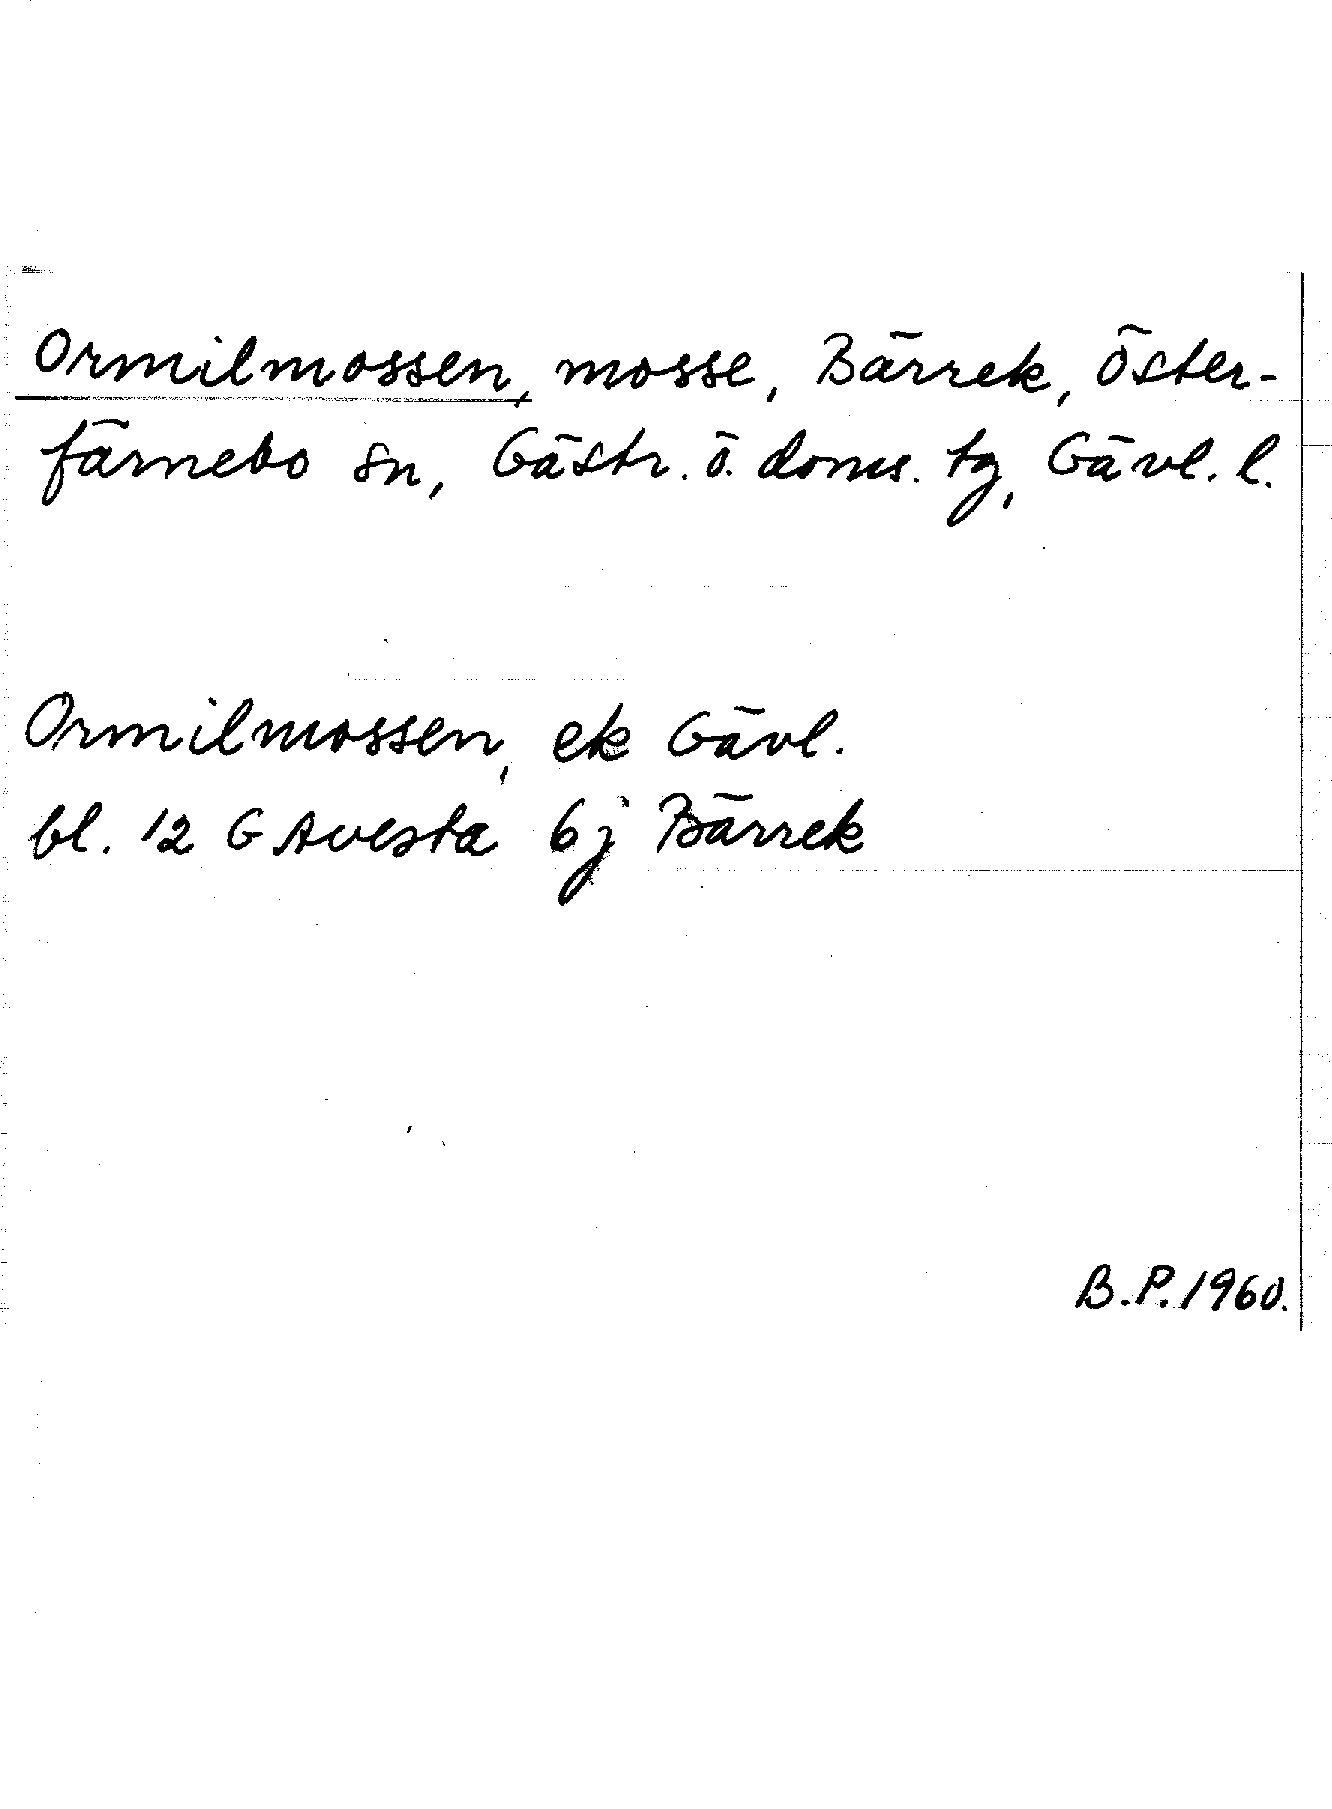 Ormilmossen, mosse, Bärrek, Öster-
färnebo sn, Gästr. ö. doms. tg, Gävl. l.
Ormilmossen, ek Gävl.
bl. 12 G Avesta 6j Bärrek
B.P. 1960.